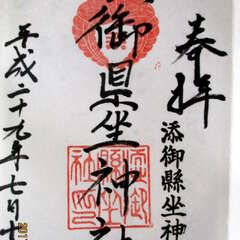 奉拝
添御縣坐神
御県坐神社
平成二十九年七月十